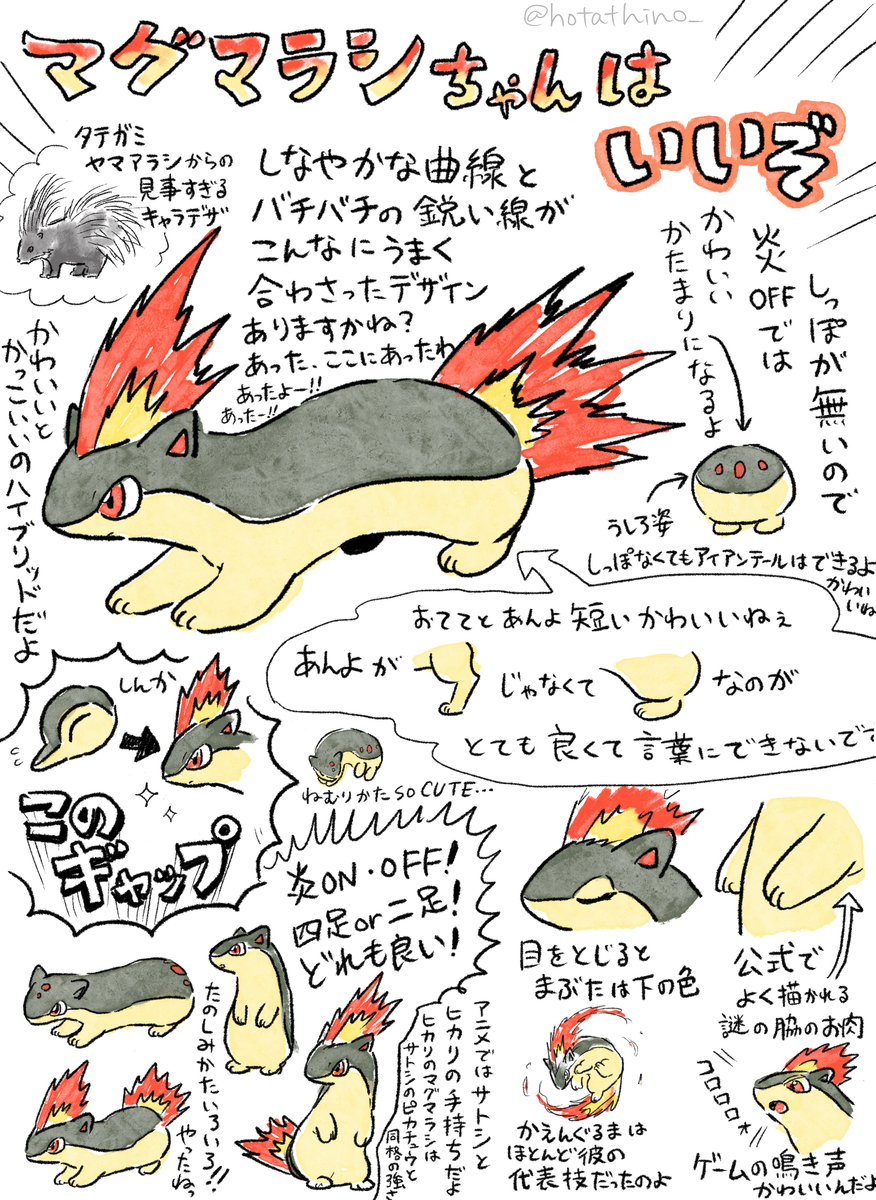 @hotathino_
マグマラシちゃんは
いいぞ
タテガミ
ヤマアラシからの
見事すぎる
キャラデザ
しなやかな曲線と
バチバチの鋭い線が
こんなにうまく
合わさったデザイン
ありますかね?
あった、ここにあったわ
あったよー!!
あったー!!
しっぽが無いので
炎OFFでは
かわいい
かたまりになるよ
うしろ姿
しっぽなくてもアイアンテールはできるよ
かわい
いね
かわいいと
かっこいいのハイブリッドだよ
おててとあんよ短いかわいいねぇ
あんよが
じゃなくて
なのが
とても良くて言葉にできないでて
しんか
このギャップ
ねむりかたSO CUTE...
炎ON・OFF!
四足or二足!
どれも良い!
たのしみかたいろいろ!!
やったねっ
アニメではサトシと
ヒカリの手持ちだよ
ヒカリのマグマラシは
サトシのピカチュウと
同格の強さ
目をとじると
まぶたは下の色
公式で
よく描かれる
謎の脇のお肉
かえんぐるまは
ほとんど彼の
代表技だったのよ
コロロロォ
ゲームの鳴き声
かわいいんだよ